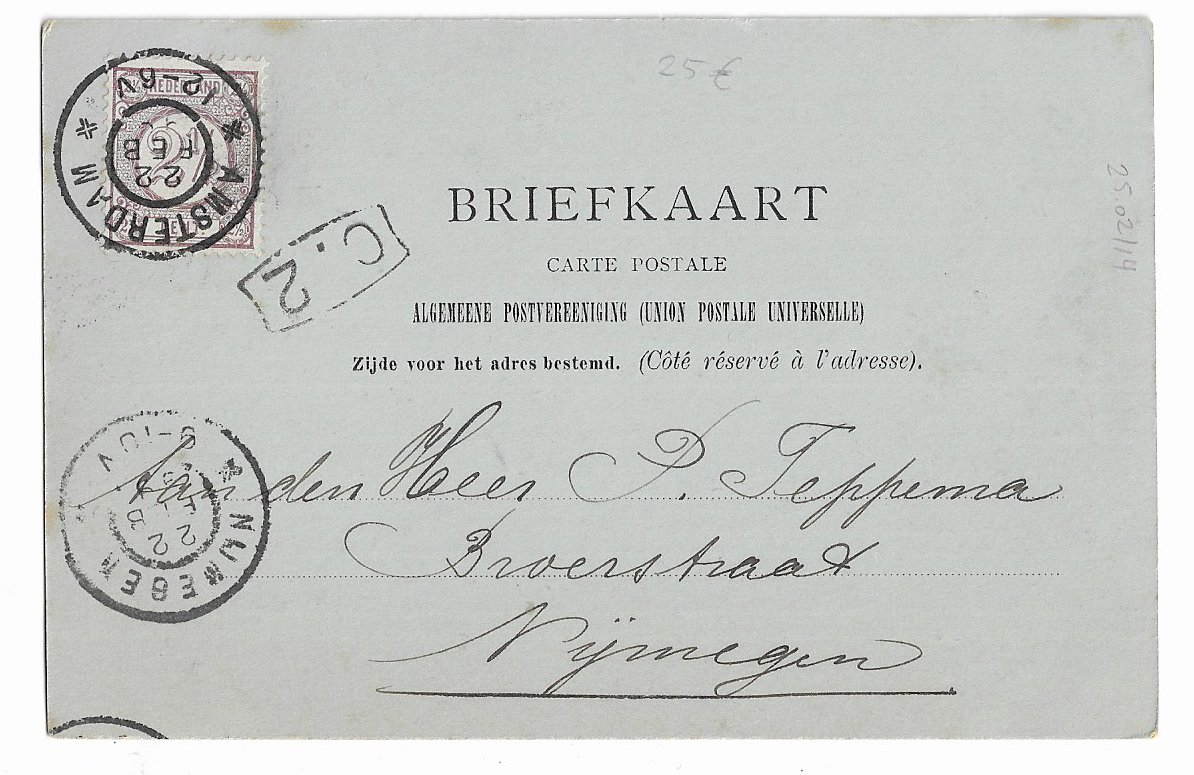 25 €
NEDERLAND
2½
12-6V
22
FEB
AMSTERDAM
C.2
25.02/14
BRIEFKAART
CARTE POSTALE
ALGEMEENE POSTVEREENIGING (UNION POSTALE UNIVERSELLE)
Zijde voor het adres bestemd. (Côté réservé à l'adresse).
Aan den Heer P. Teppema
Broerstraat
Nijmegen
22
NIJMEGEN